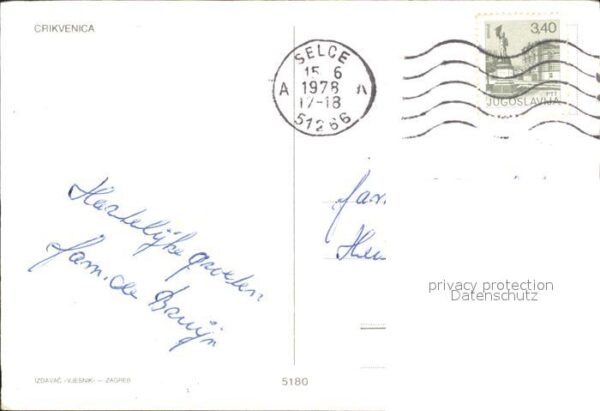 CRIKVENICA
SELCE
15 6
1978
17-18
A A
51266
3,40
PTT
JUGOSLAVIJA
Hartelijke groeten
fam. de Bruijn
fam.
privacy protection
Datenschutz
IZDAVAČ »VJESNIK« — ZAGREB
5180